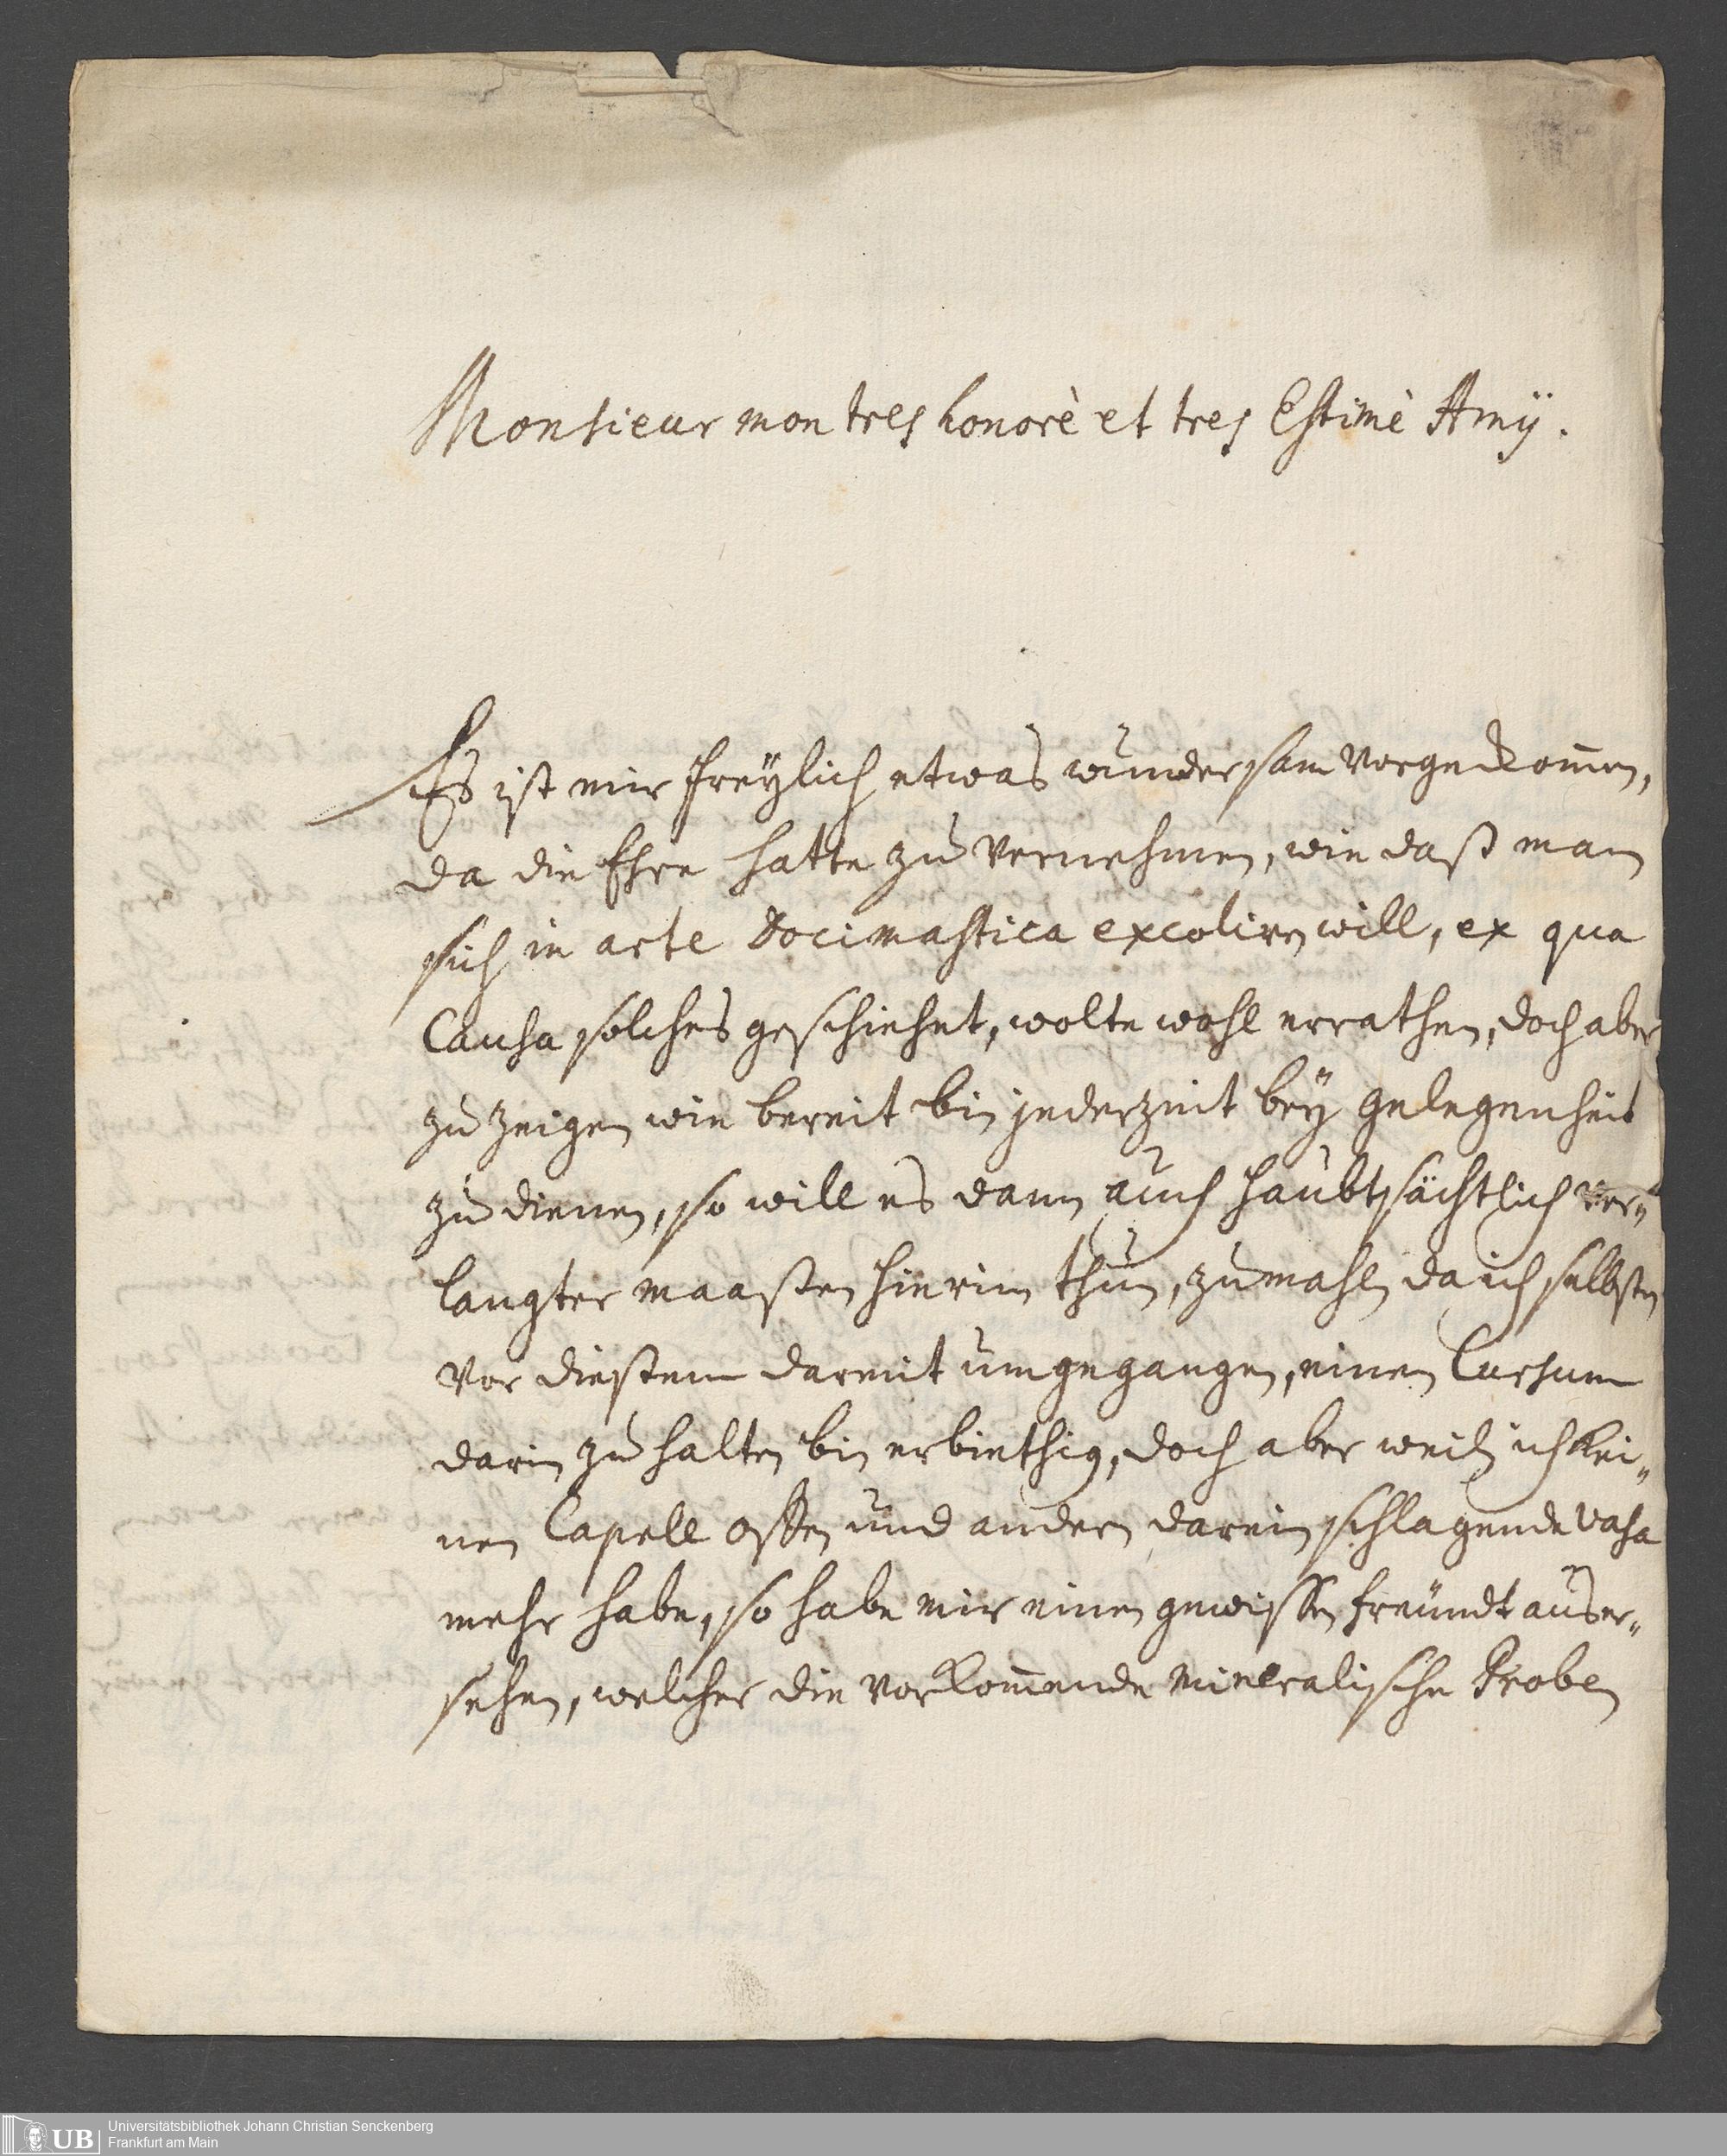 Monsieur mon tres honorè et tres Estimè Amÿ.
Es ist mir freÿlich etwas wundersam vorgekom̄en,
da die Ehre hatte zu vernehmen, wie daß man
sich in arte Docimastica excoliren will, ex qua
Causa solches geschiehet, wolte wohl errathen, doch aber
zu zeigen wie bereit bin jederzeit beÿ gelegenheit
zu dienen, so will es dann auch haubtsächtlich ver„
langter maaßen hierin thun, zumahlen da ich selbsten
vor dießem darmit umgegangen, einen Cursum
darin zu halten bin erbiethig, doch aber weilen ich kei„
nen Capell offen und andern darein schlagende vasa
mehr habe, so habe mir einen gewissen freündt auser„
sehen, welcher die vorkom̄ende mineralische Proben
UB Universitätsbibliothek Johann Christian Senckenberg
Frankfurt am Main